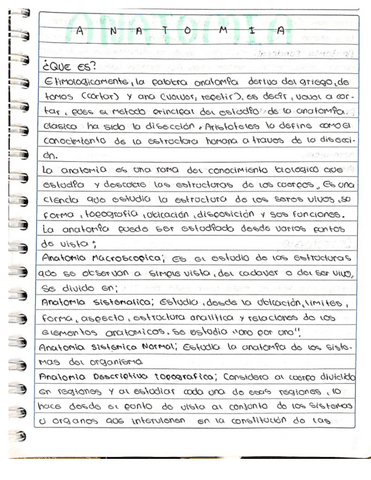 ANATOMIA
¿QUE ES?
Etimologicamente, la palabra anatomía deriva del griego, de
tomos (cortar) y ana (volver, repetir), es decir, volver a cor-
tar, pues el metodo principal del estudio de la anatomía
clasica ha sido la disección, Aristoteles la define como el
conocimiento de la estructura humana a traves de la disecci-
ón.
La anatomía es una rama del conocimiento biologico que
estudia y describe las estructuras de los cuerpos, Es una
ciencia que estudia la estructura de los seres vivos, su
forma, topografía, ubicación, disposición y sus funciones.
La anatomía puede ser estudiada desde varios puntos
de vista;
Anatomía Macroscopica; Es el estudio de las estructuras
que se observan a simple vista, del cadaver o del ser vivo,
Se divide en;
Anatomía Sistematica; Estudia, desde la ubicación, limites,
forma, aspecto, estructura analítica y relaciones de los
elementos anatomicos, Se estudia "uno por uno",
Anatomía Sistemica Normal; Estudia la anatomía de los siste-
mas del organismo
Anatomía Descriptiva topografica; Considera al cuerpo dividido
en regiones y al estudiar cada una de esas regiones, lo
hace desde el punto de vista al conjunto de los sistemas
u organos que intervienen en la constitución de las